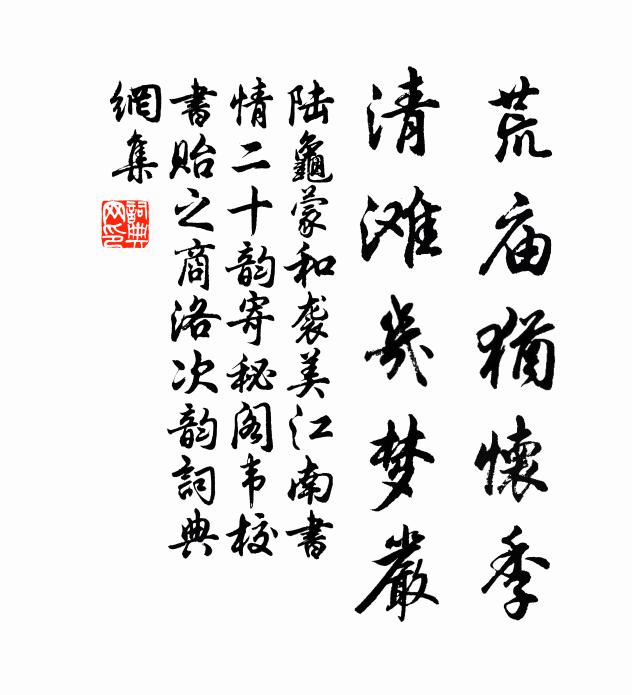 荒庙猶懷季
清滩几梦嚴
陆龜蒙和袭美江南書
情二十韵寄秘阁韦校
書貽之商洛次韵詞典
網集
詞典网印